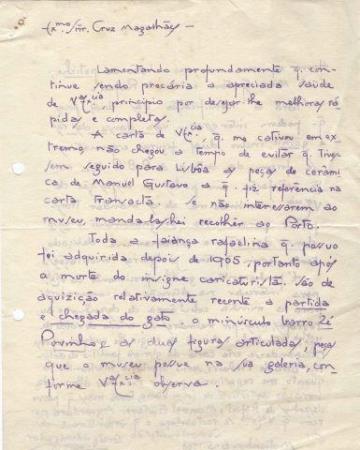 Exmo. Snr. Cruz Magalhães -
Lamentando profundamente q. con-
tinue sendo precária a apreciada saúde
de V. Excia, principio por desejar-lhe melhoras rá-
pidas e completas.
A carta de V. Excia, q. mo cativou em ex-
tremo não chegou a tempo de evitar q. tives-
sem seguido para Lisbôa as peças de cerami-
ca de Manuel Gustavo a q. fiz referência na
carta transacta. Se não interessarem ao
museu, manda-las-hei recolher ao Porto.
Toda a faiança rafaelina q. possuo
foi adquirida depois de 1905, portanto após
a morte do insigne caricaturista. São de
aquizição relativamente recente a partida
e chegada do gato, o minúsculo barro Zé
Povinho e as duas figuras articuladas, peças
que o museu possue na sua galeria, con-
forme V. Excia observa.